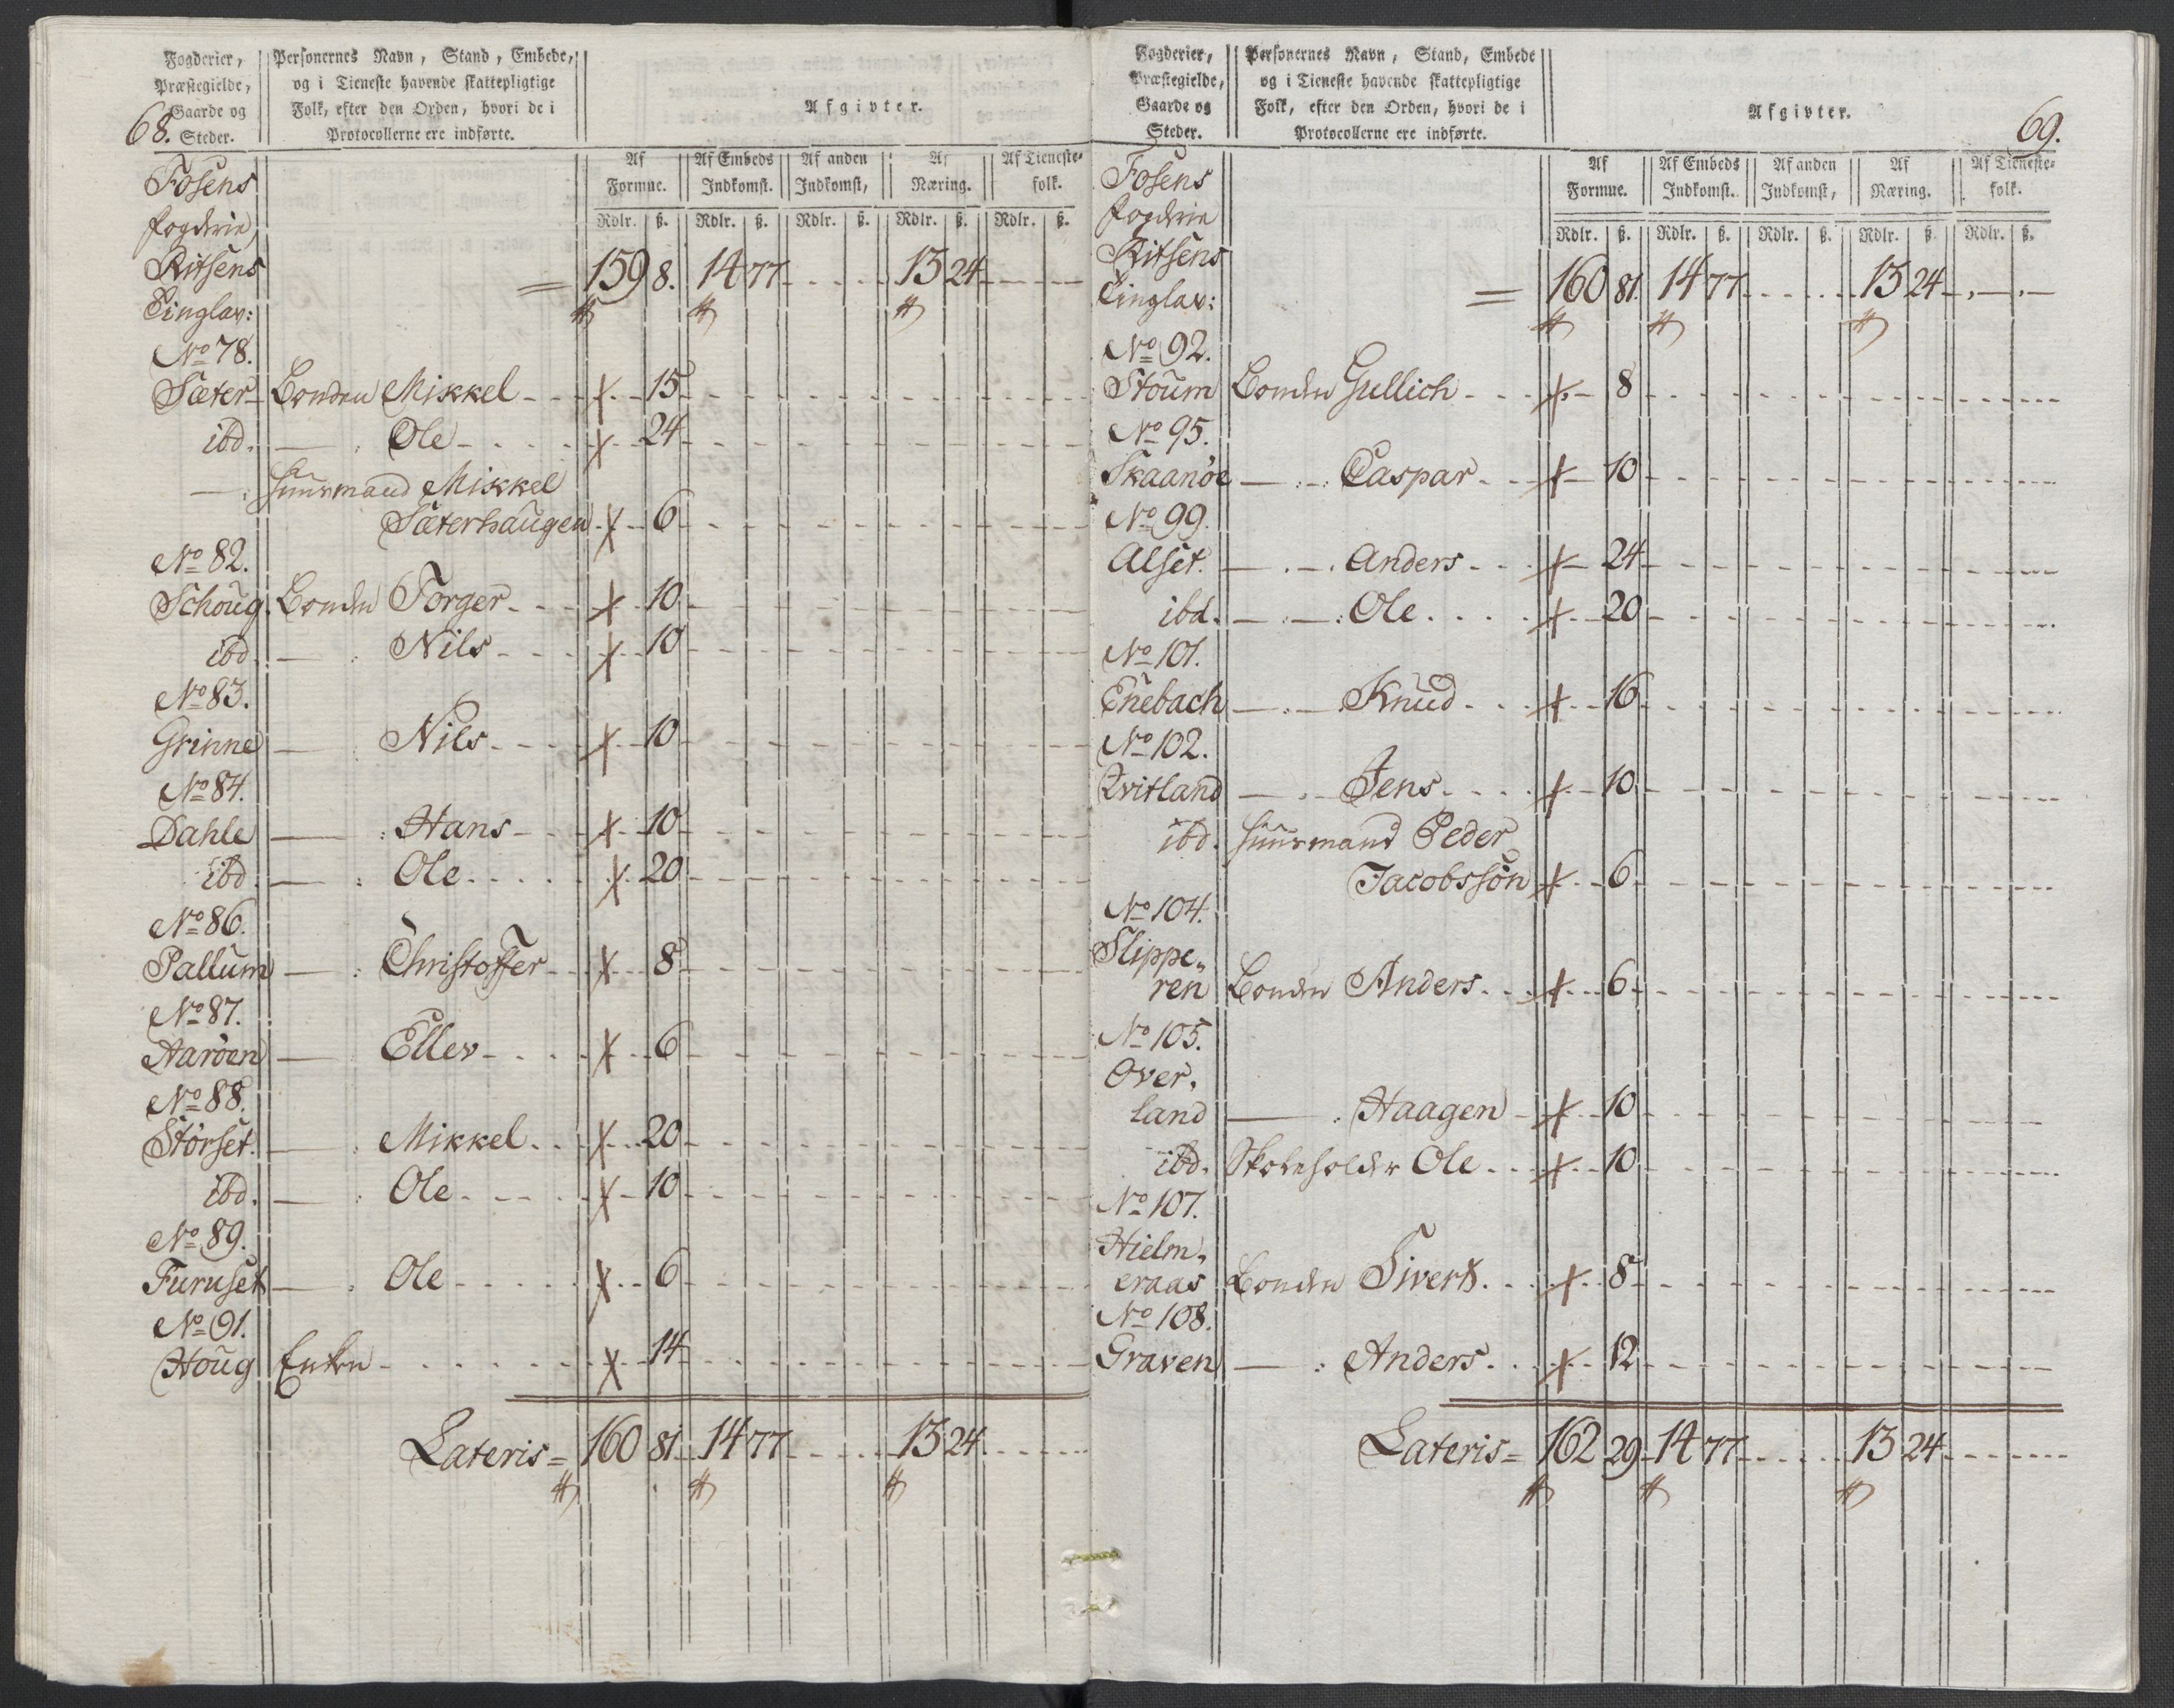 68.
Fogderier, Præstegielde, Gaarde og Steder.
Personernes Navn, Stand, Embede, og i Tieneste havende skattepligtige Folk, efter den Orden, hvori de i Protocollerne ere indførte.
Afgivter.
Af Formue. Af Embeds Indkomst. Af anden Indkomst, Af Næring. Af Tieneste-folk.
Rdlr. ß. Rdlr. ß. Rdlr. ß. Rdlr. ß. Rdlr. ß.
Fosens
fogderie
Ritsens = 159 8. 14 77 13 24
Tinglav:
No 78.
Sæter Bonden Mikkel 15
ibd. — : Ole 24
— : Huusmand Mikkel
Sæterhaugen 6
No 82.
Schoug. Bonden Torger 10
ibd. — : Nils 10
No 83.
Grinne — Nils 10
No 84.
Dahle — : Hans 10
ibd. — : Ole 20
No 86.
Pallum — : Christoffer 8
No 87.
Aarøen — Ellev 6
No 88.
Størset. — : Mikkel 20
ibd. — : Ole 10
No 89.
Furuset — : Ole 6
No 91.
Houg Enken 14
Lateris = 160 81 14 77 13 24
69.
Fogderier, Præstegielde, Gaarde og Steder.
Personernes Navn, Stand, Embede og i Tieneste havende skattepligtige Folk, efter den Orden, hvori de i Protocollerne ere indførte.
Afgivter.
Af Formue. Af Embeds Indkomst. Af anden Indkomst, Af Næring. Af Tieneste-folk.
Rdlr. ß. Rdlr. ß. Rdlr. ß. Rdlr. ß. Rdlr. ß.
Fosens
fogderie
Ritsens
Tinglav: = 160 81 14 77 13 24
No 92.
Stoum Bonden Gullich 8
No 95.
Skaanøe — : Caspar 10
No 99.
Alset. — . — . Anders 24
ibd. — : — : Ole 20
No 101.
Enebach — . — Knud 16
No 102.
Qvitland — . — Jens 10
ibd. Huusmand Peder
Jacobssøn 6
No 104.
Slippe„
ren Bonden Anders 6
No 105.
Over„
land — : Haagen 10
ibd. Skoleholder Ole 10
No 107.
Hielm„
eraas Bonden Sivert 8
No 108.
Graven — : Anders 12
Lateris = 162 29 14 77 13 24